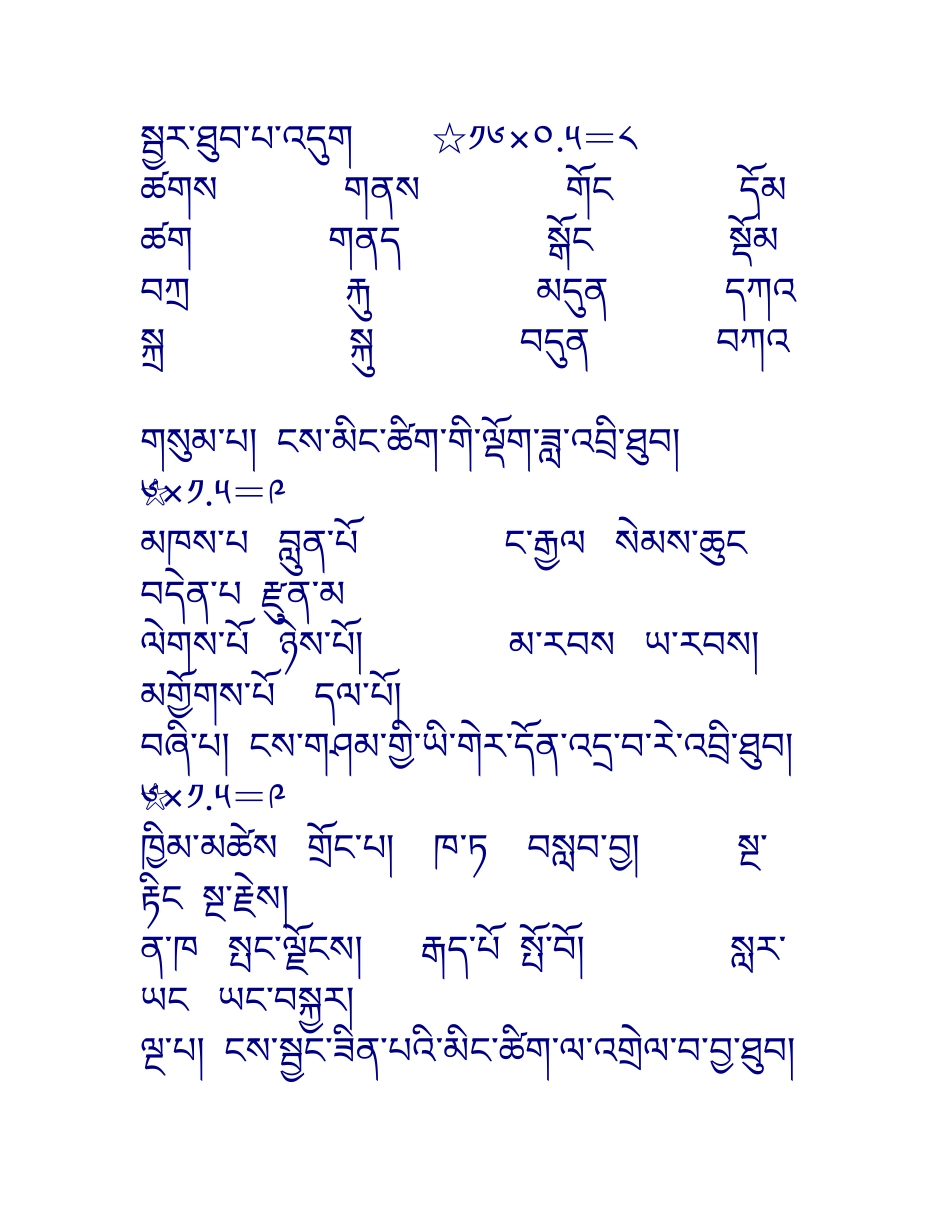 སྦྱར་ཐུབ་པ་འདུག ☆༡༦×༠.༥=༨
ཚགས གནས གོང དོམ
ཚག གནད སྒོང སྡོམ
བཀྲ རྐུ མདུན དཀའ
སྐྲ སྐུ བདུན བཀའ
གསུམ་པ། ངས་མིང་ཚིག་གི་ལྡོག་ཟླ་འབྲི་ཐུབ།
☆༦×༡.༥=༩
མཁས་པ བླུན་པོ ང་རྒྱལ སེམས་ཆུང
བདེན་པ རྫུན་མ
ལེགས་པོ ཉེས་པོ། མ་རབས ཡ་རབས།
མགྱོགས་པོ དལ་པོ།
བཞི་པ། ངས་གཤམ་གྱི་ཡི་གེར་དོན་འདྲ་བ་རེ་འབྲི་ཐུབ།
☆༦×༡.༥=༩
ཁྱིམ་མཚེས གྲོང་པ། ཁ་ཏ བསླབ་བྱ། སྔ་
རྟིང སྔ་རྗེས།
ན་ཁ སྤང་ལྗོངས། རྒད་པོ སྤོ་བོ། སླར་
ཡང ཡང་བསྐྱར།
ལྔ་པ། ངས་སྦྱང་ཟིན་པའི་མིང་ཚིག་ལ་འགྲེལ་བ་བྱ་ཐུབ།